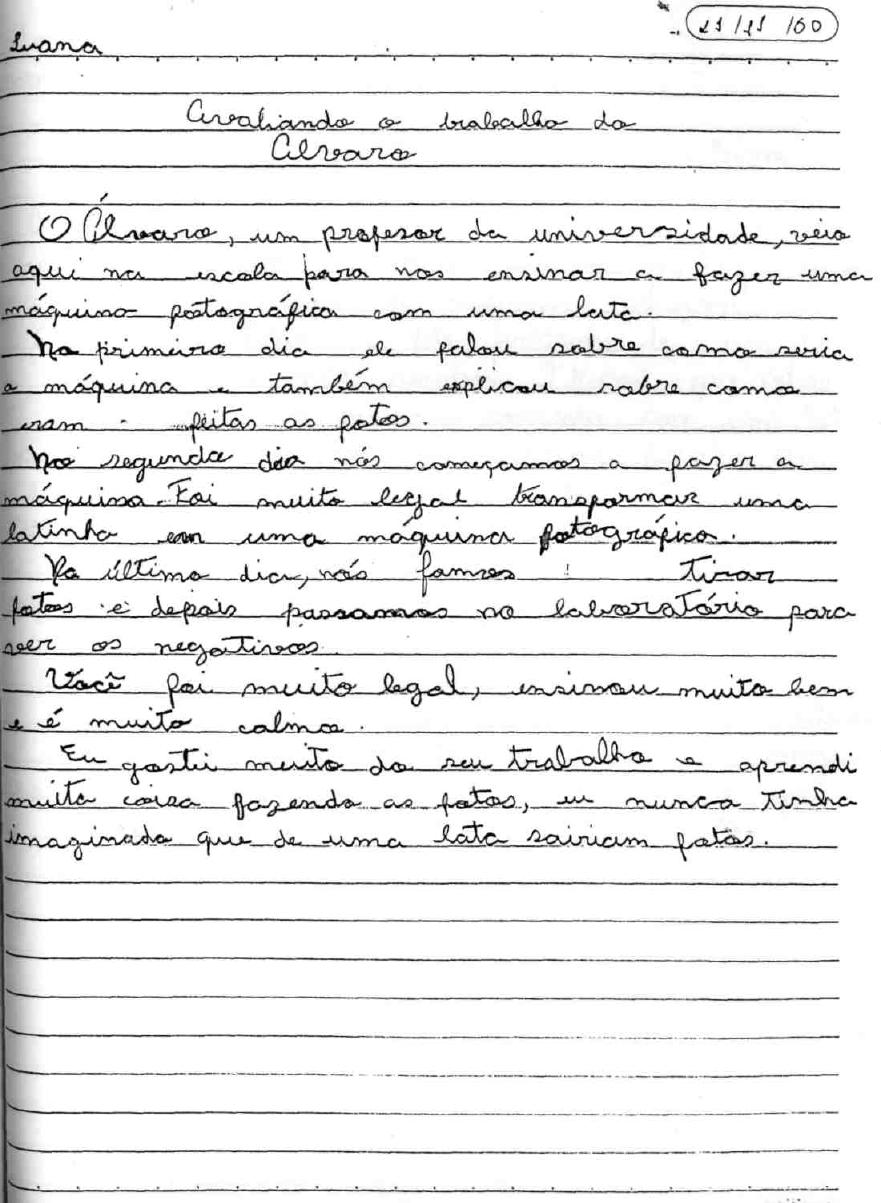 Luana
21/11/00
Avaliando o trabalho do
Álvaro
O Álvaro, um profesor da universidade, veio
aqui na escola para nos ensinar a fazer uma
máquina fotográfica com uma lata.
No primeiro dia ele falou sobre como seria
a máquina e também explicou sobre como
eram feitas as fotos.
No segundo dia nós começamos a fazer a
máquina. Foi muito legal transformar uma
latinha em uma máquina fotográfica.
No último dia, nós fomos tirar
fotos e depois passamos no laboratório para
ver os negativos.
Você foi muito legal, ensinou muito bem
e é muito calmo.
Eu gostei muito do seu trabalho e aprendi
muita coisa fazendo as fotos, eu nunca tinha
imaginado que de uma lata sairiam fotos.